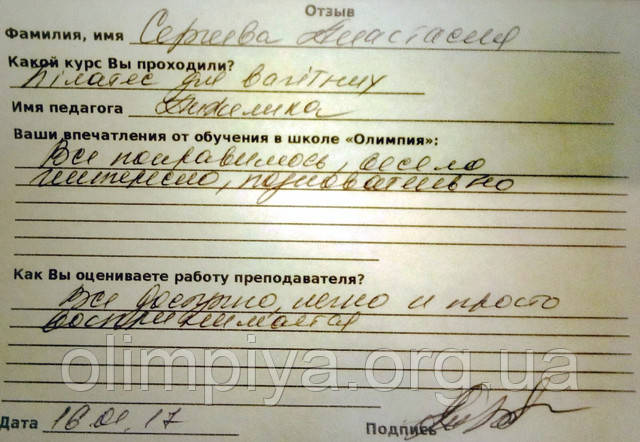 Отзыв
Фамилия, имя Сергиева Анастасия
Какой курс Вы проходили?
Пілатес для вагітних
Имя педагога Анжелика
Ваши впечатления от обучения в школе «Олимпия»:
Все понравилось, весело
интересно, познавательно
Как Вы оцениваете работу преподавателя?
Все доступно, легко и просто
воспринимается
olimpiya.org.ua
Дата 16.01.17 Подпись